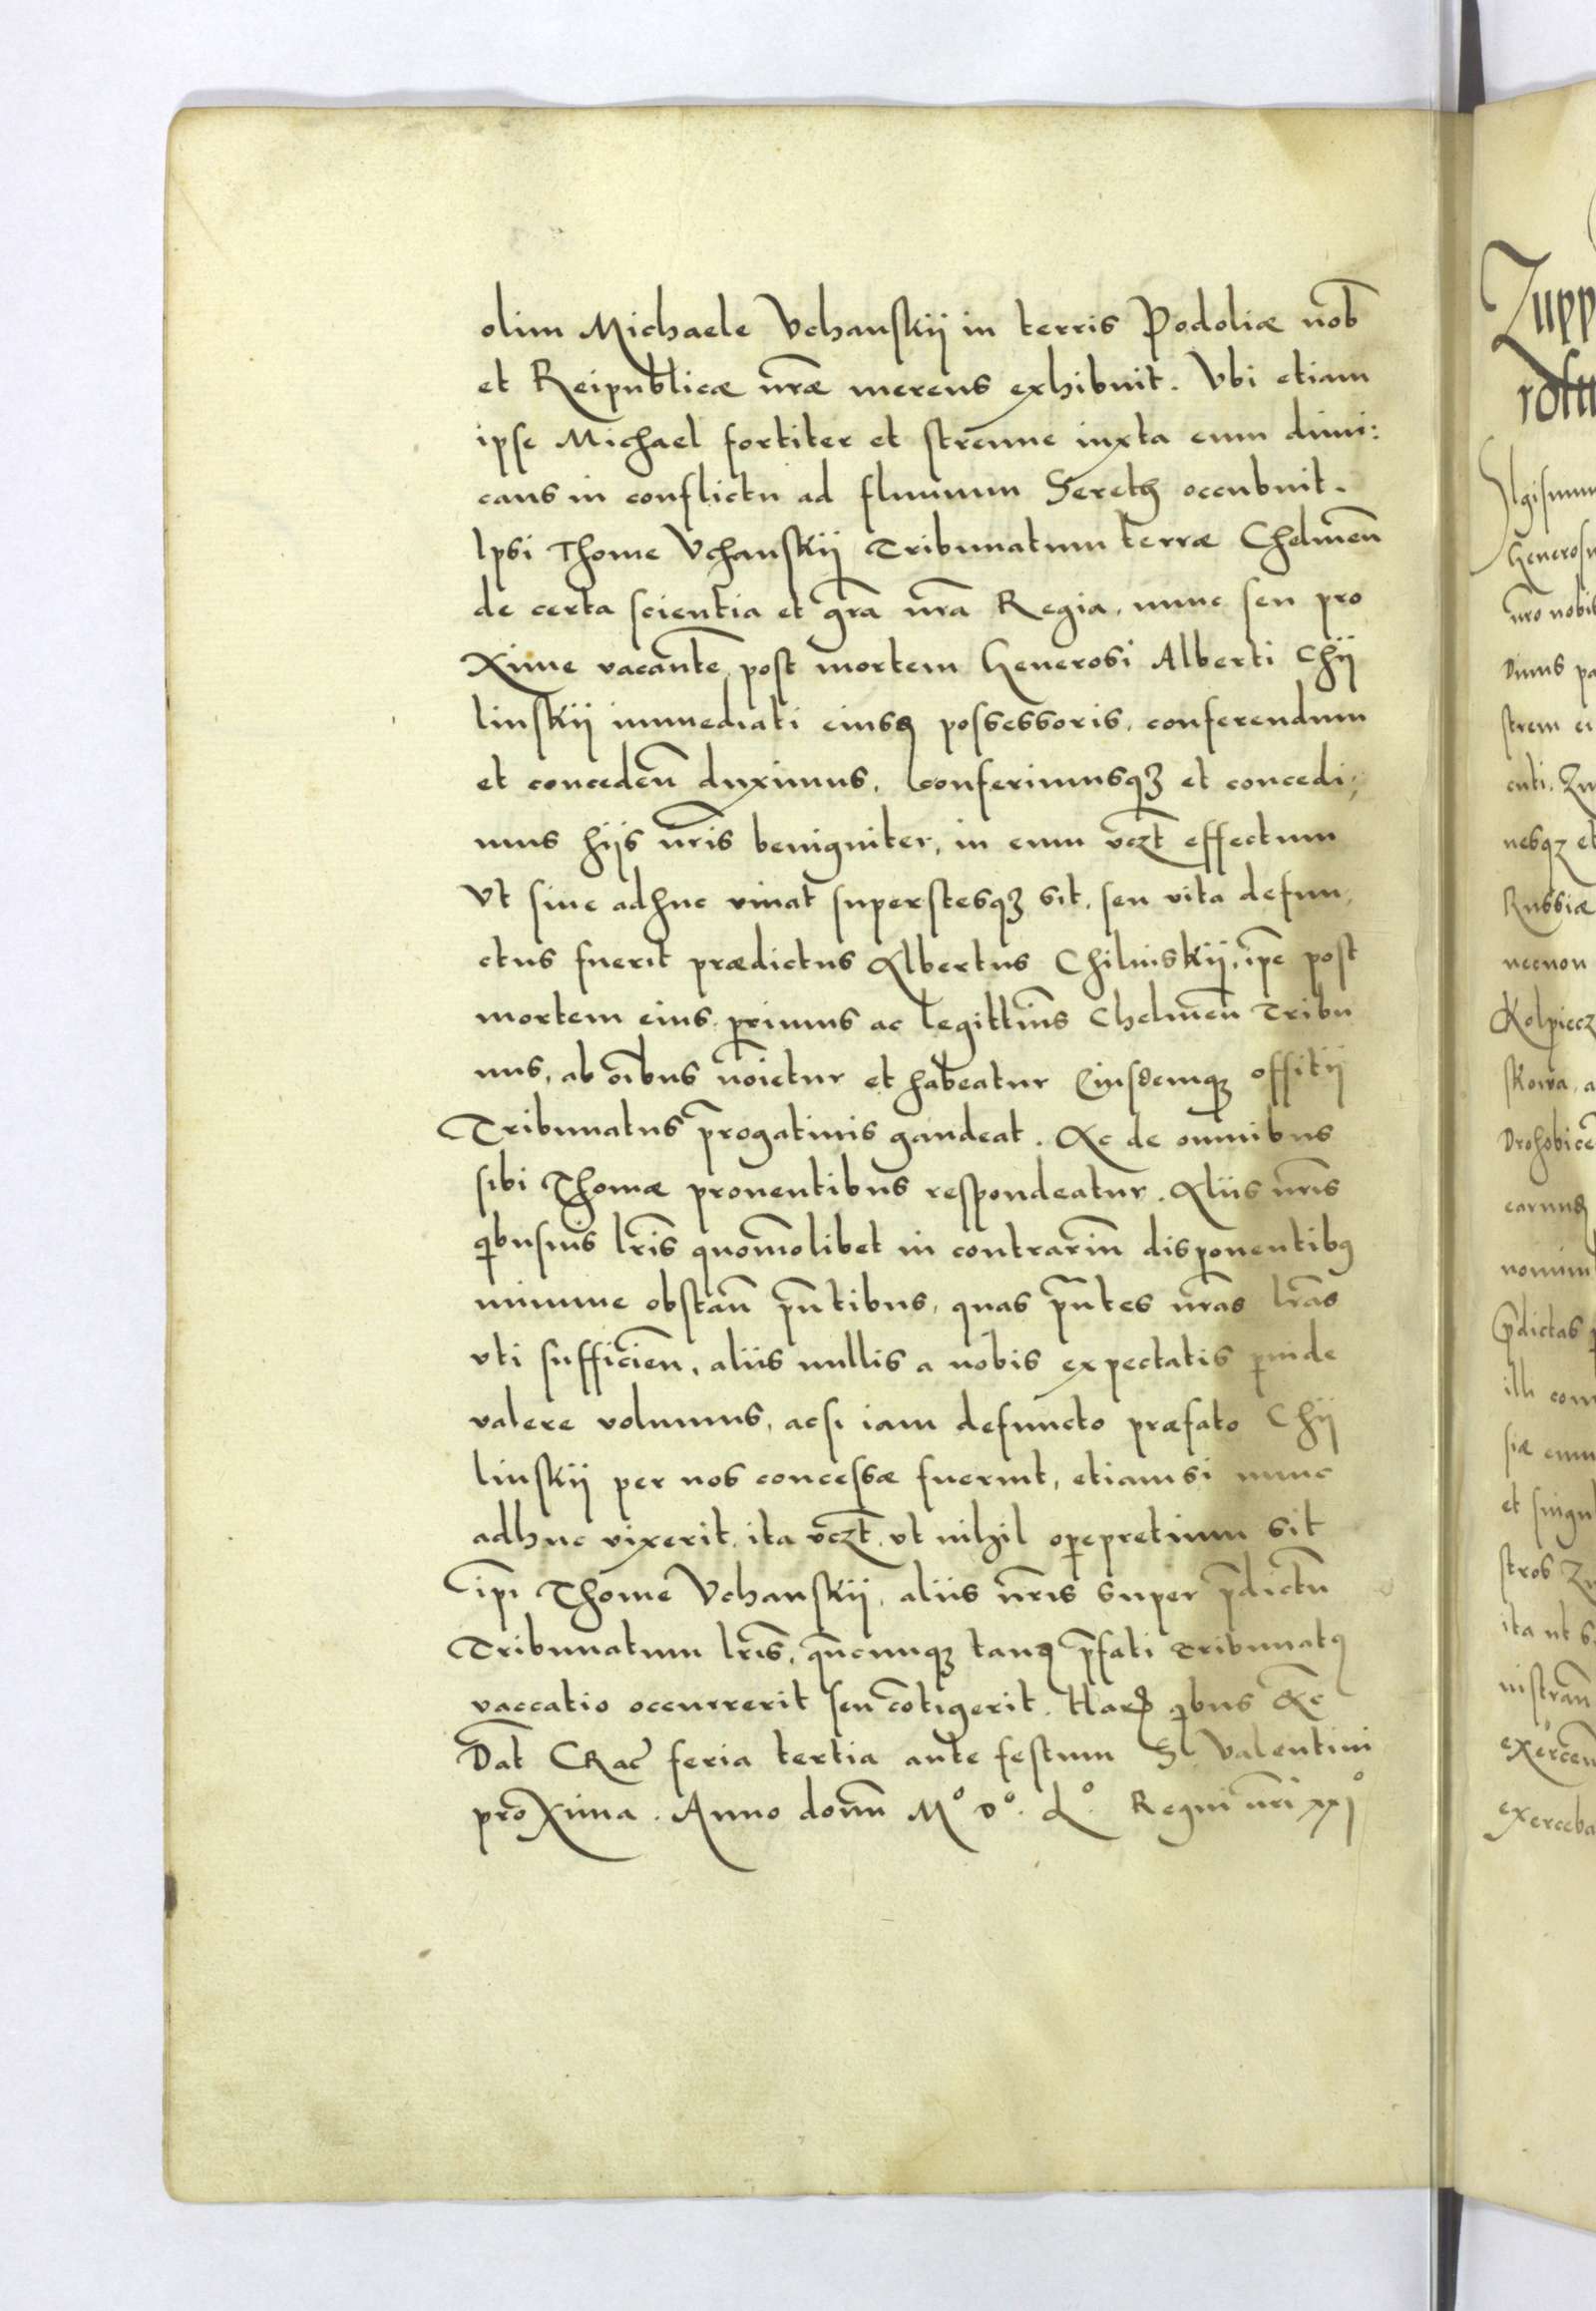 olim Michaele Vchanskij in terris Podoliæ nob̄
et Reipublicæ nr̄æ merens exhibuit. Vbi etiam
ipse Michael fortiter et strenue iuxta eum dimi:
cans in conflictu ad fluuium Sereth occubuit.
Ipsi Thome Vchanskij Tribunatum terræ Chelmen̄
de certa scientia et gr̄a nr̄a Regia, nunc seu pro
Xime vacante, post mortem Generosi Alberti Chÿ
linskij immediati eiusd possessoris, conferendum
et conceden̄ duximus, conferimusqȝ et concedi,
mus hijs nr̄is benigniter, in eum vczt̄ effectum
Vt siue adhuc viuat superstesqȝ sit, seu vita defun,
ctus fuerit prædictus Albertus Chilinskij, ip̄e post
mortem eius primus ac legittim̄s Chelmen̄ Tribu
nus, ab oīb̄us no͞ietur et habeatur Eiusdemqȝ offitij
Tribunatus p̄rogatiuis gaudeat. Ac de omnibus
sibi Thomæ prouentibus respondeatur. Aliis nr̄is
qibusuis lr̄is quomolibet in contrariū disponentibꝯ
minime obstan̄ pn̄tibus, quas pn̄tes nr̄as lr̄as
vti sufficien̄, aliis nullis a nobis expectatis ꝑinde
valere volumus, acsi iam defuncto præfato Chÿ
linskij per nos concessæ fuerint, etiamsi nunc
adhuc vixerit, ita vczt̄, vt nihil opepretium sit
ip̄i Thome Vchanskij, aliis nr̄is super p̄dictū
Tribunatum lr̄is, qn̄cunqȝ tand p̄fati Tribunatꝯ
vaccatio occurrerit seu cōtigerit. Harꝝ qibus &c̄
Dat̄ CRac̄ feria tertia ante festum S. Valentini
proXima. Anno domn̄ M° D°. L°. Regni nr̄i xxj°
Zupp
Generosu
nr̄o nobil
Diuus pa
strem ei
cuti. Zu
nesqȝ et
Russiæ
necnon
Kolpiecz
skowa, a
Drohobicē
earund
p̄dictas p
illi com
siæ eum
et singu
stros Zu
ita ut s
nistran̄
exercen̄
exerceba